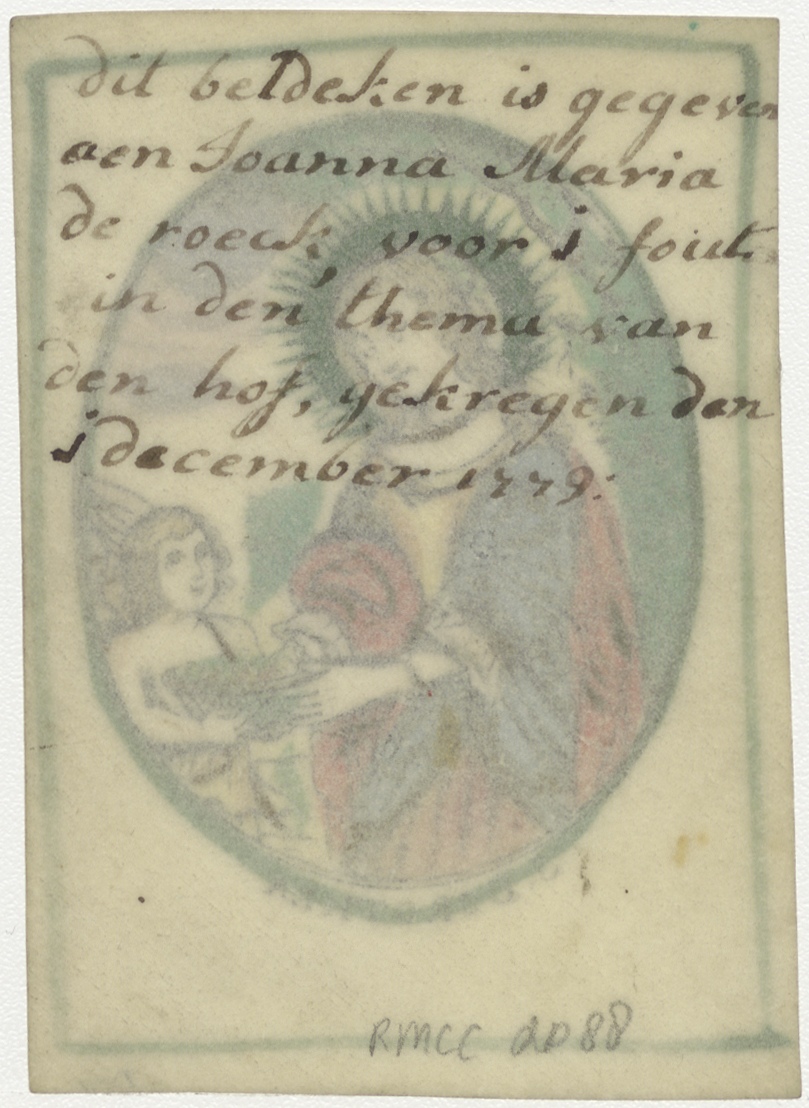 dit beldeken is gegeven
aen Joanna Maria
de roeck, voor j fout.
in den thema van
den hof, gekregen den
j december 1779:
RMCC dD88